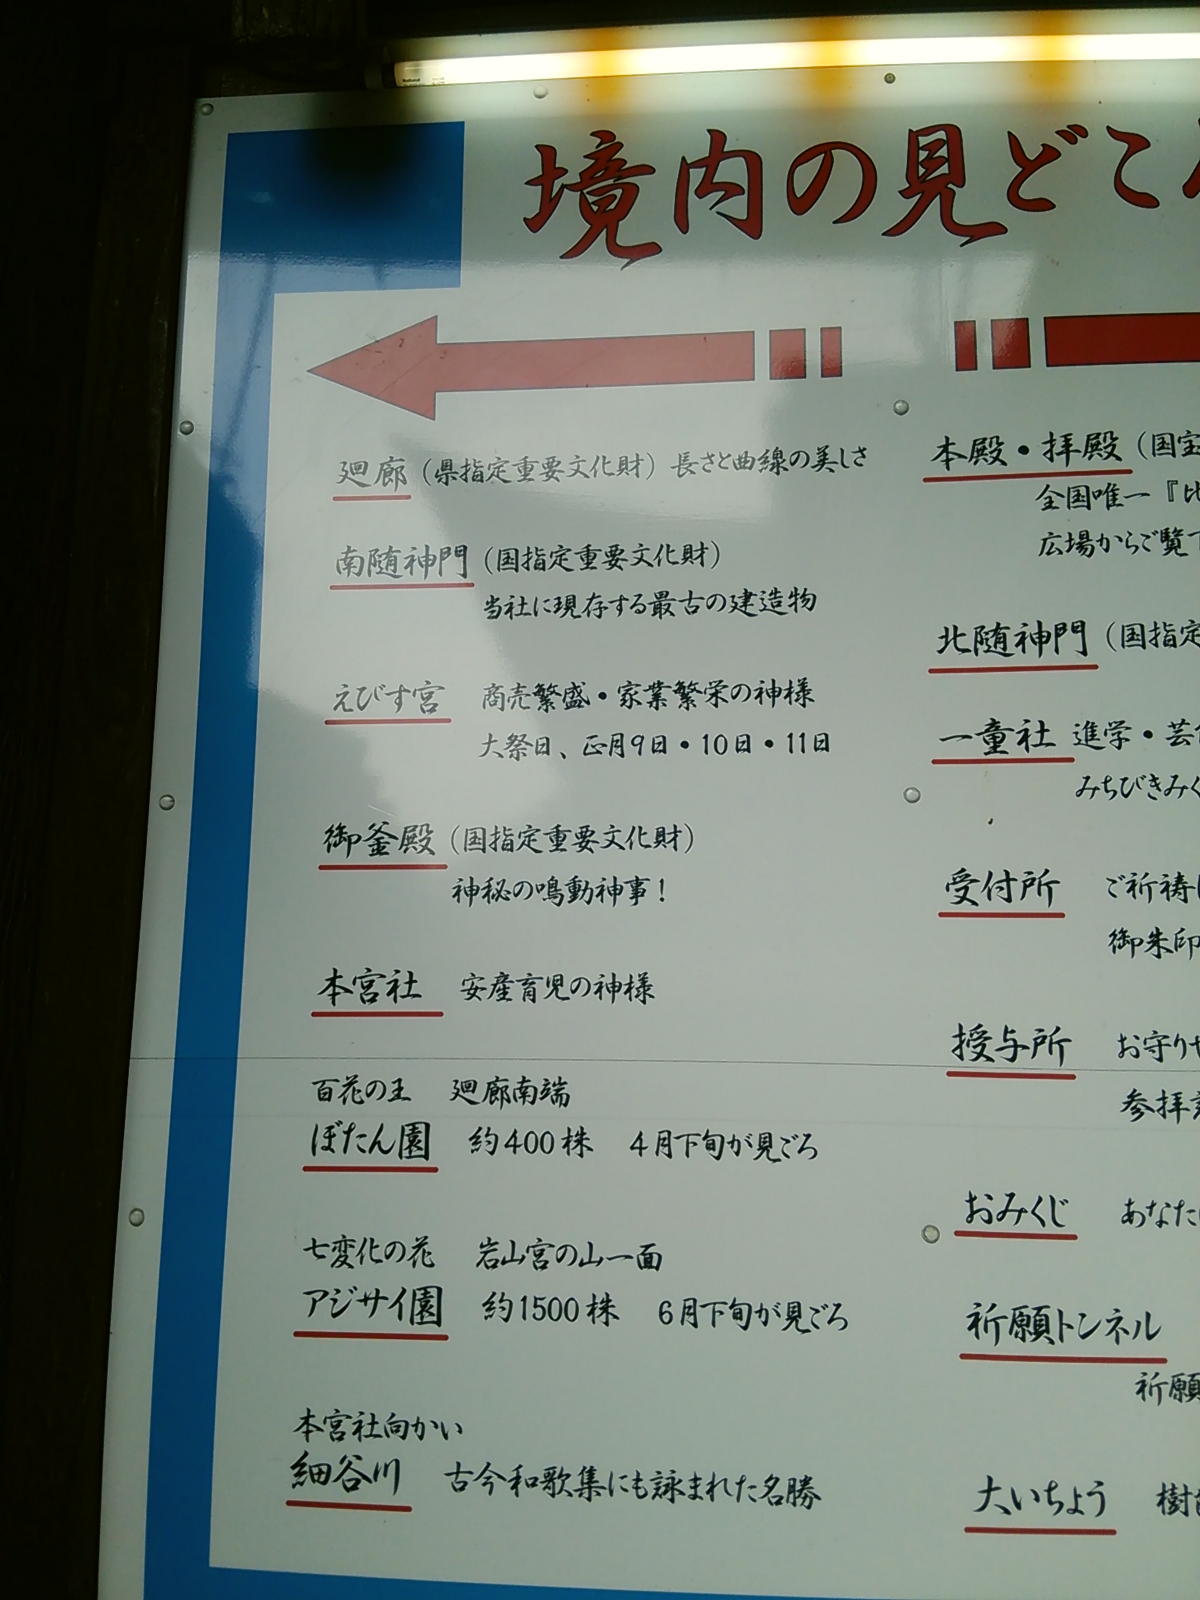 境内の見どころ
廻廊（県指定重要文化財）長さと曲線の美しさ
南随神門（国指定重要文化財）
当社に現存する最古の建造物
えびす宮 商売繁盛・家業繁栄の神様
大祭日、正月9日・10日・11日
御釜殿（国指定重要文化財）
神秘の鳴動神事！
本宮社 安産育児の神様
百花の王 廻廊南端
ぼたん園 約400株 4月下旬が見ごろ
七変化の花 岩山宮の山一面
アジサイ園 約1500株 6月下旬が見ごろ
本宮社向かい
細谷川 古今和歌集にも詠まれた名勝
本殿・拝殿（国宝
全国唯一『比
広場からご覧下
北随神門（国指定
一童社 進学・芸
みちびきみく
受付所 ご祈祷
御朱印
授与所 お守りや
参拝
おみくじ あなた
祈願トンネル
祈願
大いちょう 樹